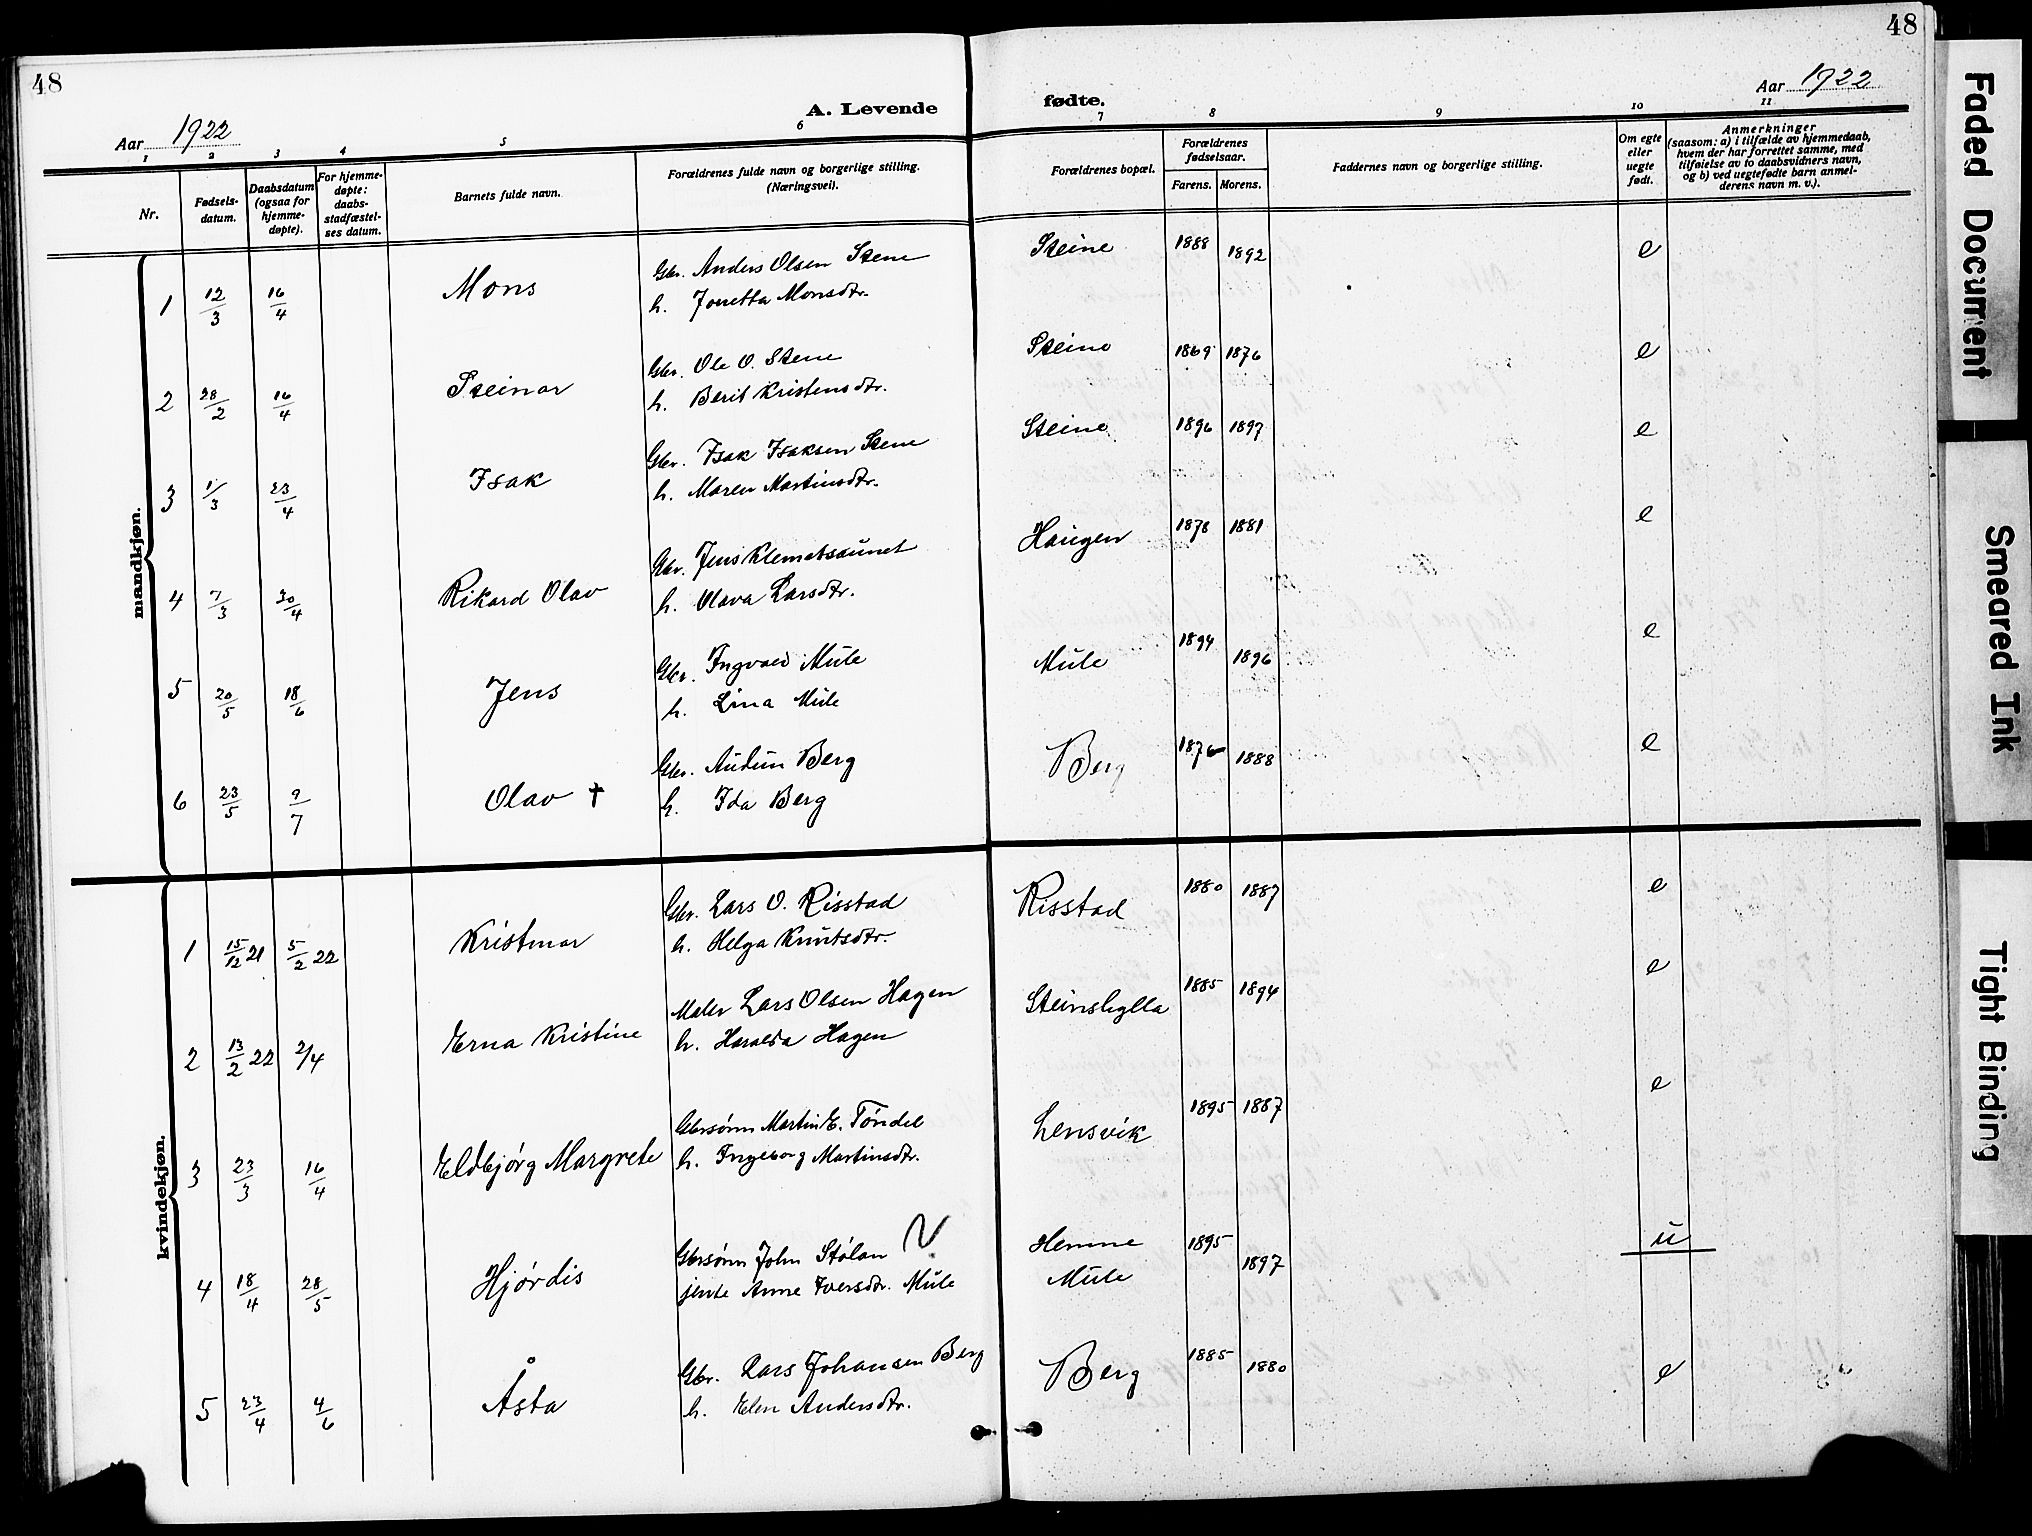 48
Aar 1922
A. Levende
1 2 3 4 5 6
Nr.
Fødsels-
datum.
Daabsdatum
(ogsaa for
hjemme-
døpte).
For hjemme-
døpte:
daabs-
stadfæstel-
ses datum.
Barnets fulde navn.
Forældrenes fulde navn og borgerlige stilling.
(Næringsvei).
mandkjøn.
1 12/3 16/4 Mons
Gbr. Anders Olsen Stene
h. Joretta Monsdtr.
2 28/2 16/4 Steinar
Gbr. Ole O. Stene
h. Berit Kristensdtr.
3 1/3 23/4 Isak
Gbr. Isak Isaksen Stene
h. Maren Martinsdtr.
4 7/3 30/4 Rikard Olav
Gbr. Jens Klemetsaunet
h. Olava Larsdtr.
5 20/5 18/6 Jens
Gbr. Ingvald Mule
h. Lina Mule
6 23/5 9/7 Olav †
Gbr. Audun Berg
h. Ida Berg
kvindekjøn.
1 15/12 21 5/2 22 Kristmar
Gbr. Lars O. Risstad
h. Helga Knutsdtr.
2 13/2 22 2/4 Erna Kristine
Maler Lars Olsen Hagen
h. Haralda Hagen
3 23/3 16/4 Eldbjørg Margrete
Gbrsønn Martin E. Tøndel
h. Ingeborg Martinsdtr.
4 18/4 28/5 Hjørdis
Gbrsønn John Stølan
jente Anne Iversdtr. Mule
5 23/4 4/6 Åsta
Gbr. Lars Johansen Berg
h. Elen Andersdtr.
48
Aar 1922
fødte.
7 8 9 10 11
Forældrenes bopæl.
Forældrenes
fødselsaar.
Farens. Morens.
Faddernes navn og borgerlige stilling.
Om egte
eller
uegte
født.
Anmerkninger
(saasom: a) i tilfælde av hjemmedaab,
hvem der har forrettet samme, med
tilføielse av to daabsvidners navn,
og b) ved uegtefødte barn anmel-
derens navn m. v.).
Steine 1888 1892 e
Steine 1869 1876 e
Steine 1896 1897 e
Haugen 1878 1881 e
Mule 1894 1896 e
Berg 1876 1888 e
Risstad 1880 1887 e
Steinshylla 1885 1894 e
Lensvik 1895 1887 e
Hemne 1895 u
Mule 1897
Berg 1885 1880 e
Faded Document
Smeared Ink
Tight Binding